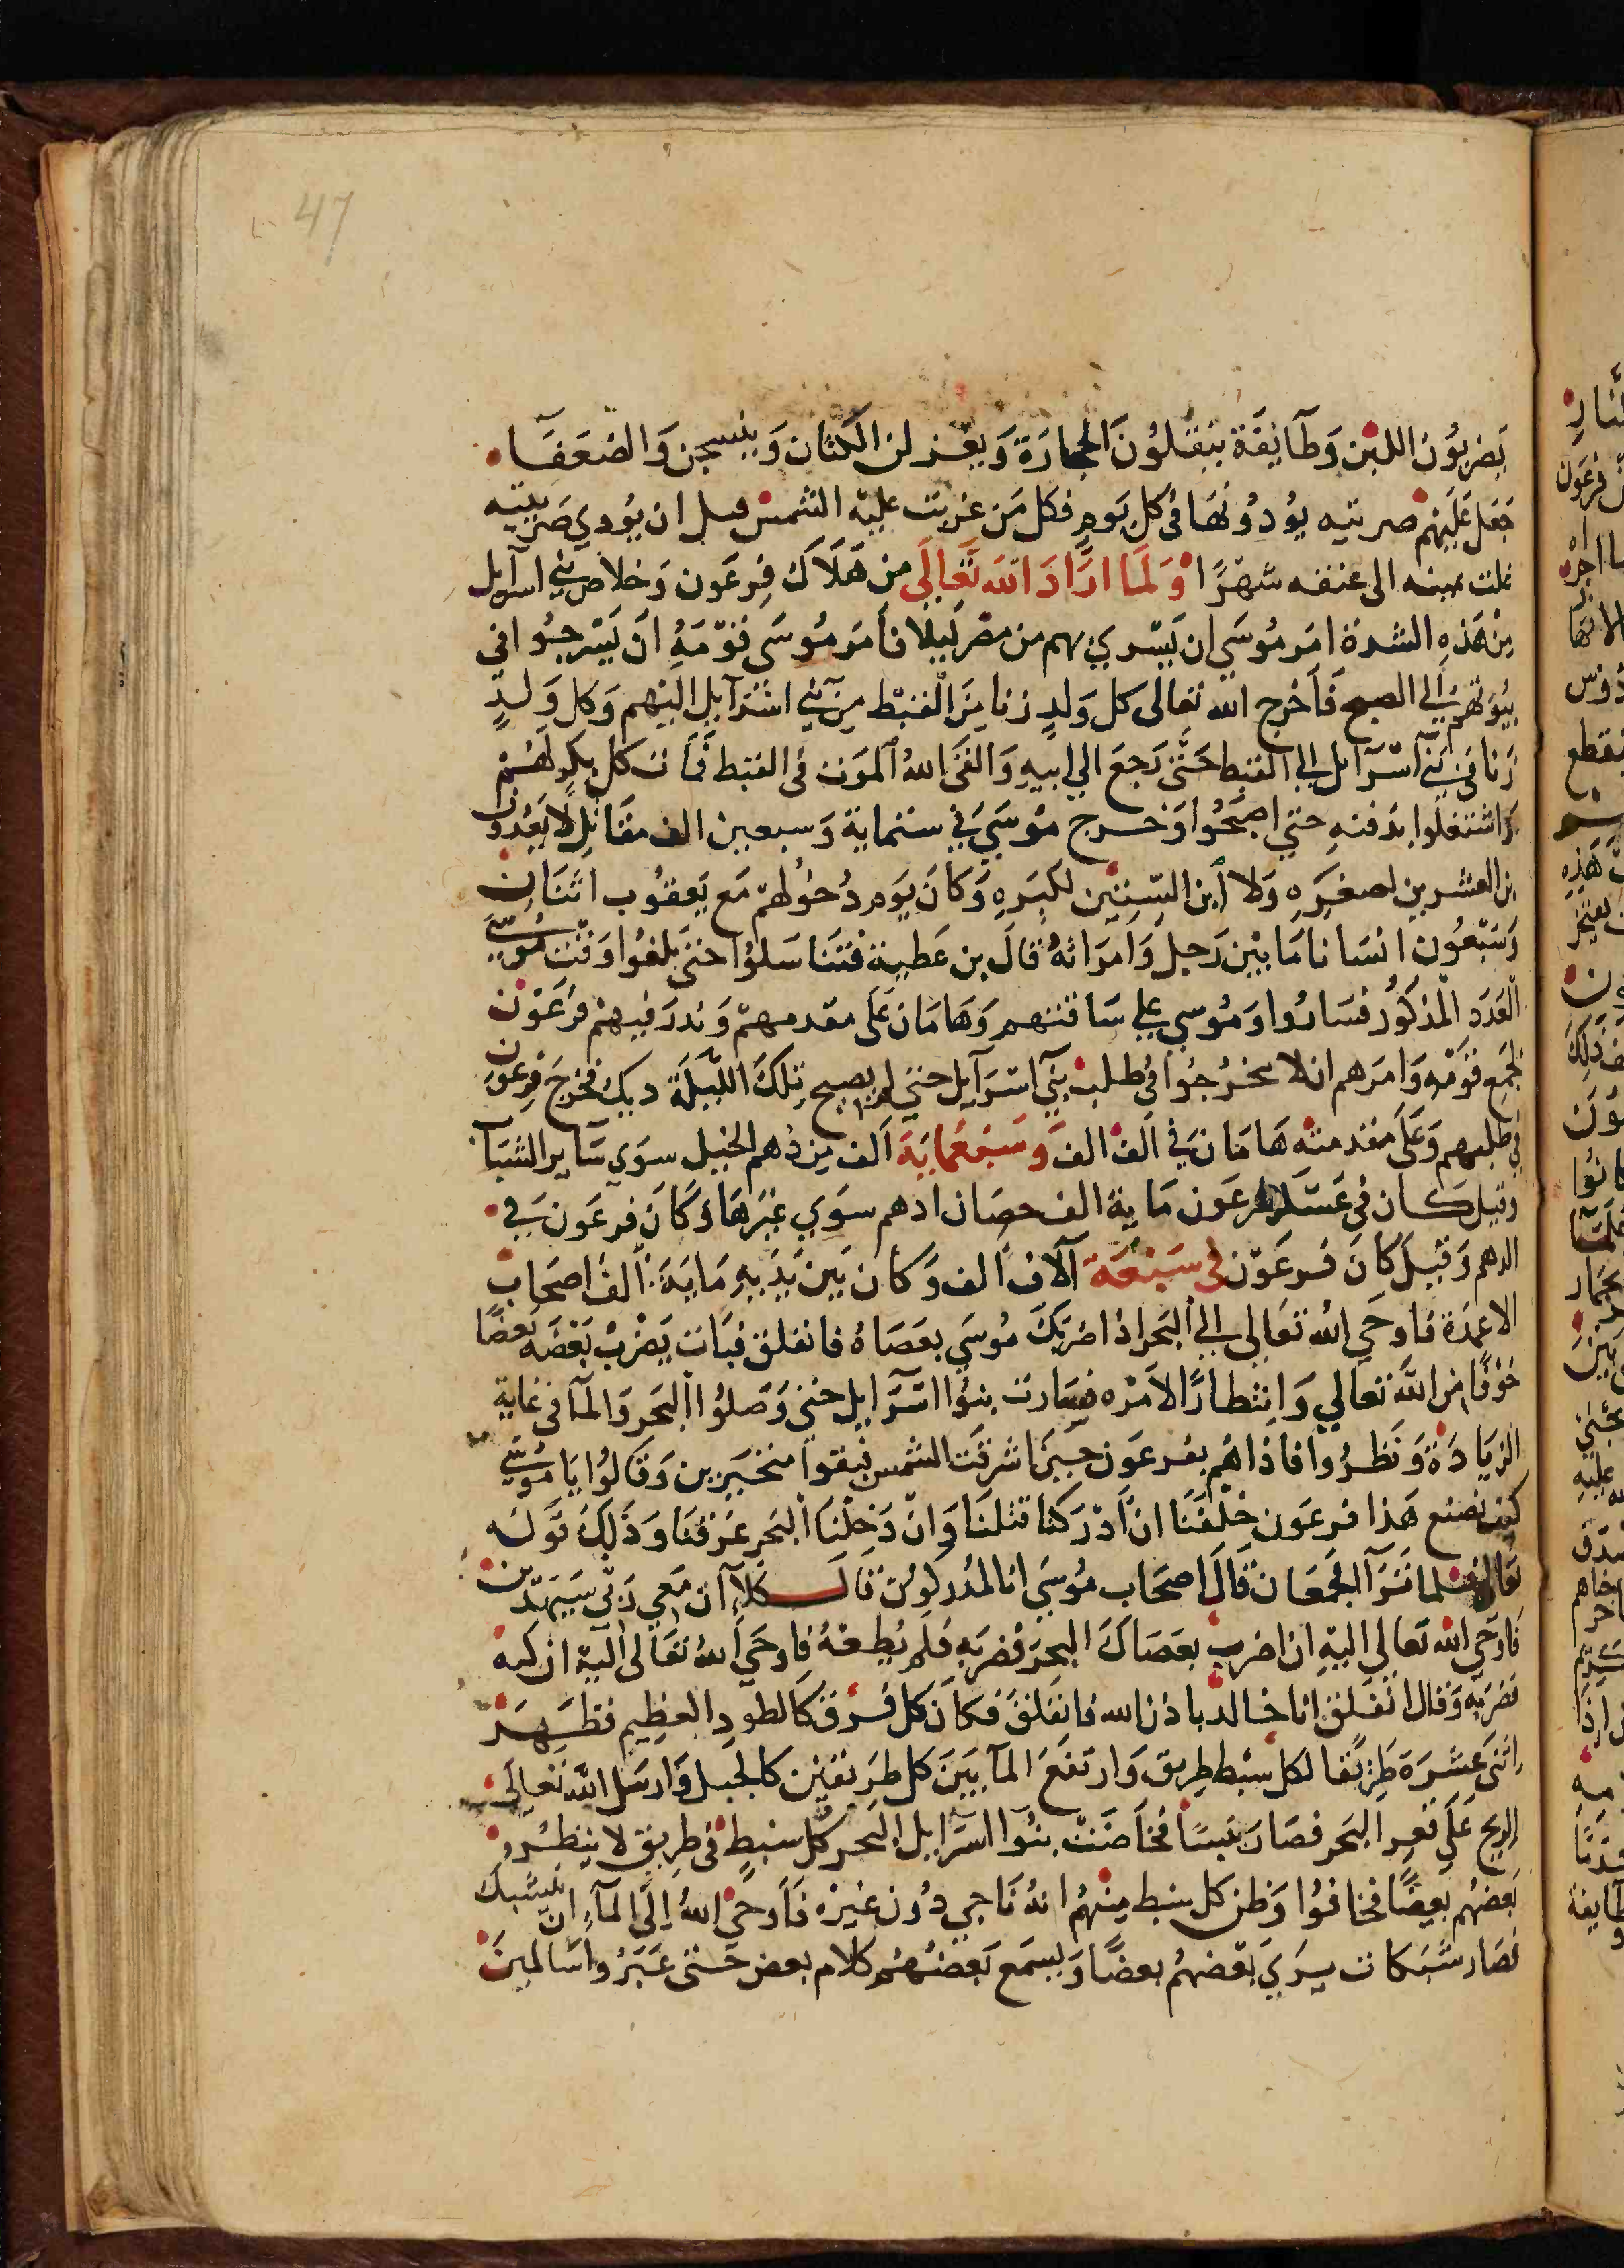 47
يَضربُون اللبن وَطآيفَة ينقلُونَ الحجارَة وَيغزلن الكتان وَينسجن وَالضعَفَا
جَعَل عَليَهم ضريبه يؤدُونهَا في كل يَوم فكل مَن غربت عليه الشمس قبل ان يُودي ضَريبته
غلت يمينه الى عنقه شهرًا وَلَما ارَادَ الله تَعَالَى من هَلَاك فِرعَون وَخلاص بني اسرآيل
مِن هَذِهِ الشدة امَر مُوسَي ان يَسْري بهم من مصر لَيلا فأمَر مُوسَى قوْمَهُ ان يَسْرجُوا في
بيُوتهم الي الصبح فَأخرج الله تعَالى كل وَلدٍ زنا مِنَ القبْط من بَني اسْرآيل اليَهم وَكل وَلدٍ
زنا في بَني اسْرَآيل الي القبط حَتَّى رَجعَ الي ابيهِ وَالقَى اللهُ المَوت في القبَط فمَات كل بكر لهُم
وَاشتغلوا بدَفنهِ حتي اصبَحُوا وَخَرج مُوسَي في ستماية وَسبعين الف مقاتل لا يَعُدون
بن العشرين لصغرِه وَلا ابن السِّتين لكبَرهِ وَكانَ يَوم دُخُولهم مَع يَعقُوب اثنَان
وَسَبْعُون انسَانا مَا بين رَجل وَامرَاته قالَ بن عَطية فتنَاسَلوا حتى بَلغوا وَقت مُوسَى
العَدَد المذكور فسَارُوا وَمُوسي علي سَاقتهم وَهَامَان عَلى مقدمهم وَندرَ فيهم فرعَون
فجمع قومَه وَامَرهم ان لا يخرُجُوا في طلب بَني اسْرَآيل حتى يصبح تلكَ اللّيلَة ديك فخرجَ فرعون
في طلبهم وَعَلى مقدمته هَامَان في الف الف وَسَبعمايَة الف من دُهم الخيل سوَي سَاير الشيَات
وقيل كان في عَسكر فرعَون مَاية الف حصَان ادهم سوَي غيرهَا وَكانَ فرعَون في
الدهم وَقيلَ كانَ فرعَون في سَبْعَة آلاف الف وَكان بَين يدَيهِ مَايَة الف اصحَاب
الاعمدَة فاوحَي الله تعَالى الي البَحر اذا ضرَبكَ مُوسَي بعَصَاهُ فانفلق فبَات يَضْربُ بَعْضَه بَعضًا
خوفًا من الله تعالي وَانتظارًا لامرْه فسَارت بنُوا اسْرَايل حتى وَصَلُوا البَحر وَالمآ في غَاية
الزيَادَة وَنظرُوا فاذاهُم بفرعَون حينَ اشرقت الشمس فبقوا متحيّرين وَقالُوا يَا مُوسَي
كيف نصنع هَذا فرعَون خلفَنا ان ادْرَكنا قتلنَا وَان دَخلنَا البَحر غرقنَا وَذلكَ قوله
تعَالى فلما ترَآ الجَمعَان قالَ اصحَاب مُوسَي انا لمدْركُون قالَ كلآ ان مَعي رَبّي سَيَهدين
فأوحَي الله تعَالي اليهِ ان اضرب بعَصَاكَ البحرَ فضرَبهِ فلم يُطعهُ فاوحَي اللهُ تعَالى اليهِ ان كنه
فضرَبه وَقال انفلق ابا خالد باذن الله فانفلقَ فكانَ كل فرْق كالطود العظِيم فظهَرَ
اثنى عَشَرَة طرْيقًا لكل سبْط طرِيق وَارتفعَ المآ بَينَ كل طرَيقين كالجَبل وَارسَل الله تعَالَى
الريح عَلى قعر البَحر فصَار يبسًا فخاضت بنُوا اسرَايل البَحر كل سبْطٍ في طريق لا ينظرُ
بَعضُهُم بعضًا فخافوا وَظن كل سبط مِنهُم انهُ نَاجي دُون غيرْه فَأوحَي اللهُ الى المآء ان يشبك
فصَار شبَكات يَرَي بَعْضهُم بعضًا وَيسمَع بَعضهُم كلام بعض حَتى عَبَرُوا سَالمينَ